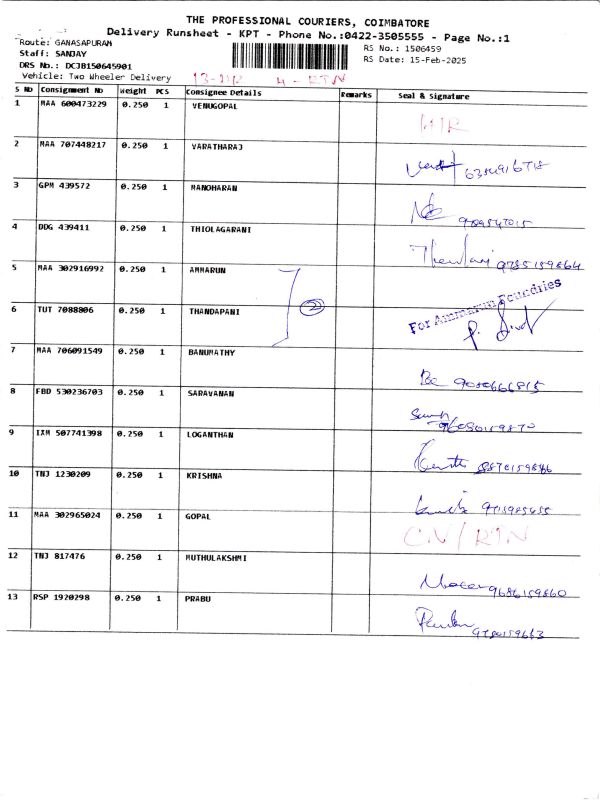 THE PROFESSIONAL COURIERS, COIMBATORE
Delivery Runsheet - KPT - Phone No.:0422-3505555 - Page No.:1
Route: GANASAPURAM
RS No.: 1506459
Staff: SANJAY
RS Date: 15-Feb-2025
DRS No.: DCJB150645901
Vehicle: Two Wheeler Delivery
S No Consignment No Weight PCS Consignee Details Remarks Seal & Signature
1 MAA 600473229 0.250 1 VENUGOPAL
2 MAA 707448217 0.250 1 VARATHARAJ
3 GPM 439572 0.250 1 MANOHARAN
4 DDG 439411 0.250 1 THIOLAGARANI
9785159864
5 MAA 302916992 0.250 1 AMMARUN
2
For Ammarun Foundries
6 TUT 7088806 0.250 1 THANDAPANI
7 MAA 706091549 0.250 1 BANUMATHY
8 FBD 530236703 0.250 1 SARAVANAN
9 IXM 507741398 0.250 1 LOGANTHAN
10 TNJ 1230209 0.250 1 KRISHNA
11 MAA 302965024 0.250 1 GOPAL
12 TNJ 817476 0.250 1 MUTHULAKSHMI
9686159860
13 RSP 1920298 0.250 1 PRABU